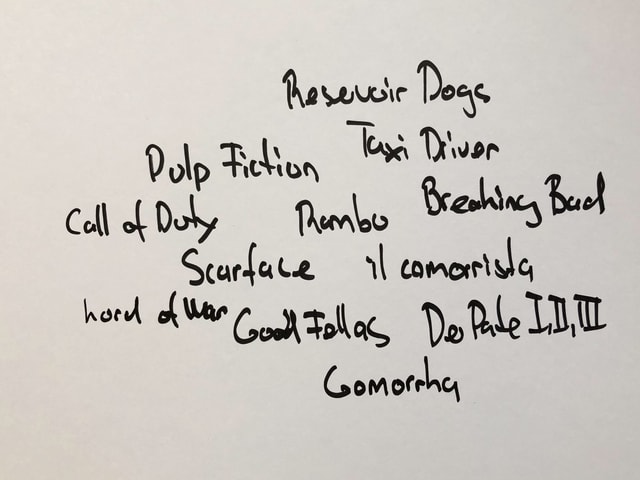 Resevoir Dogs
Taxi Driver
Pulp Fiction
Breaking Bad
Call of Duty
Rambo
Scarface
il camorrista
Lord of War
Good Fellas
Der Pate I, II, III
Gomorrha